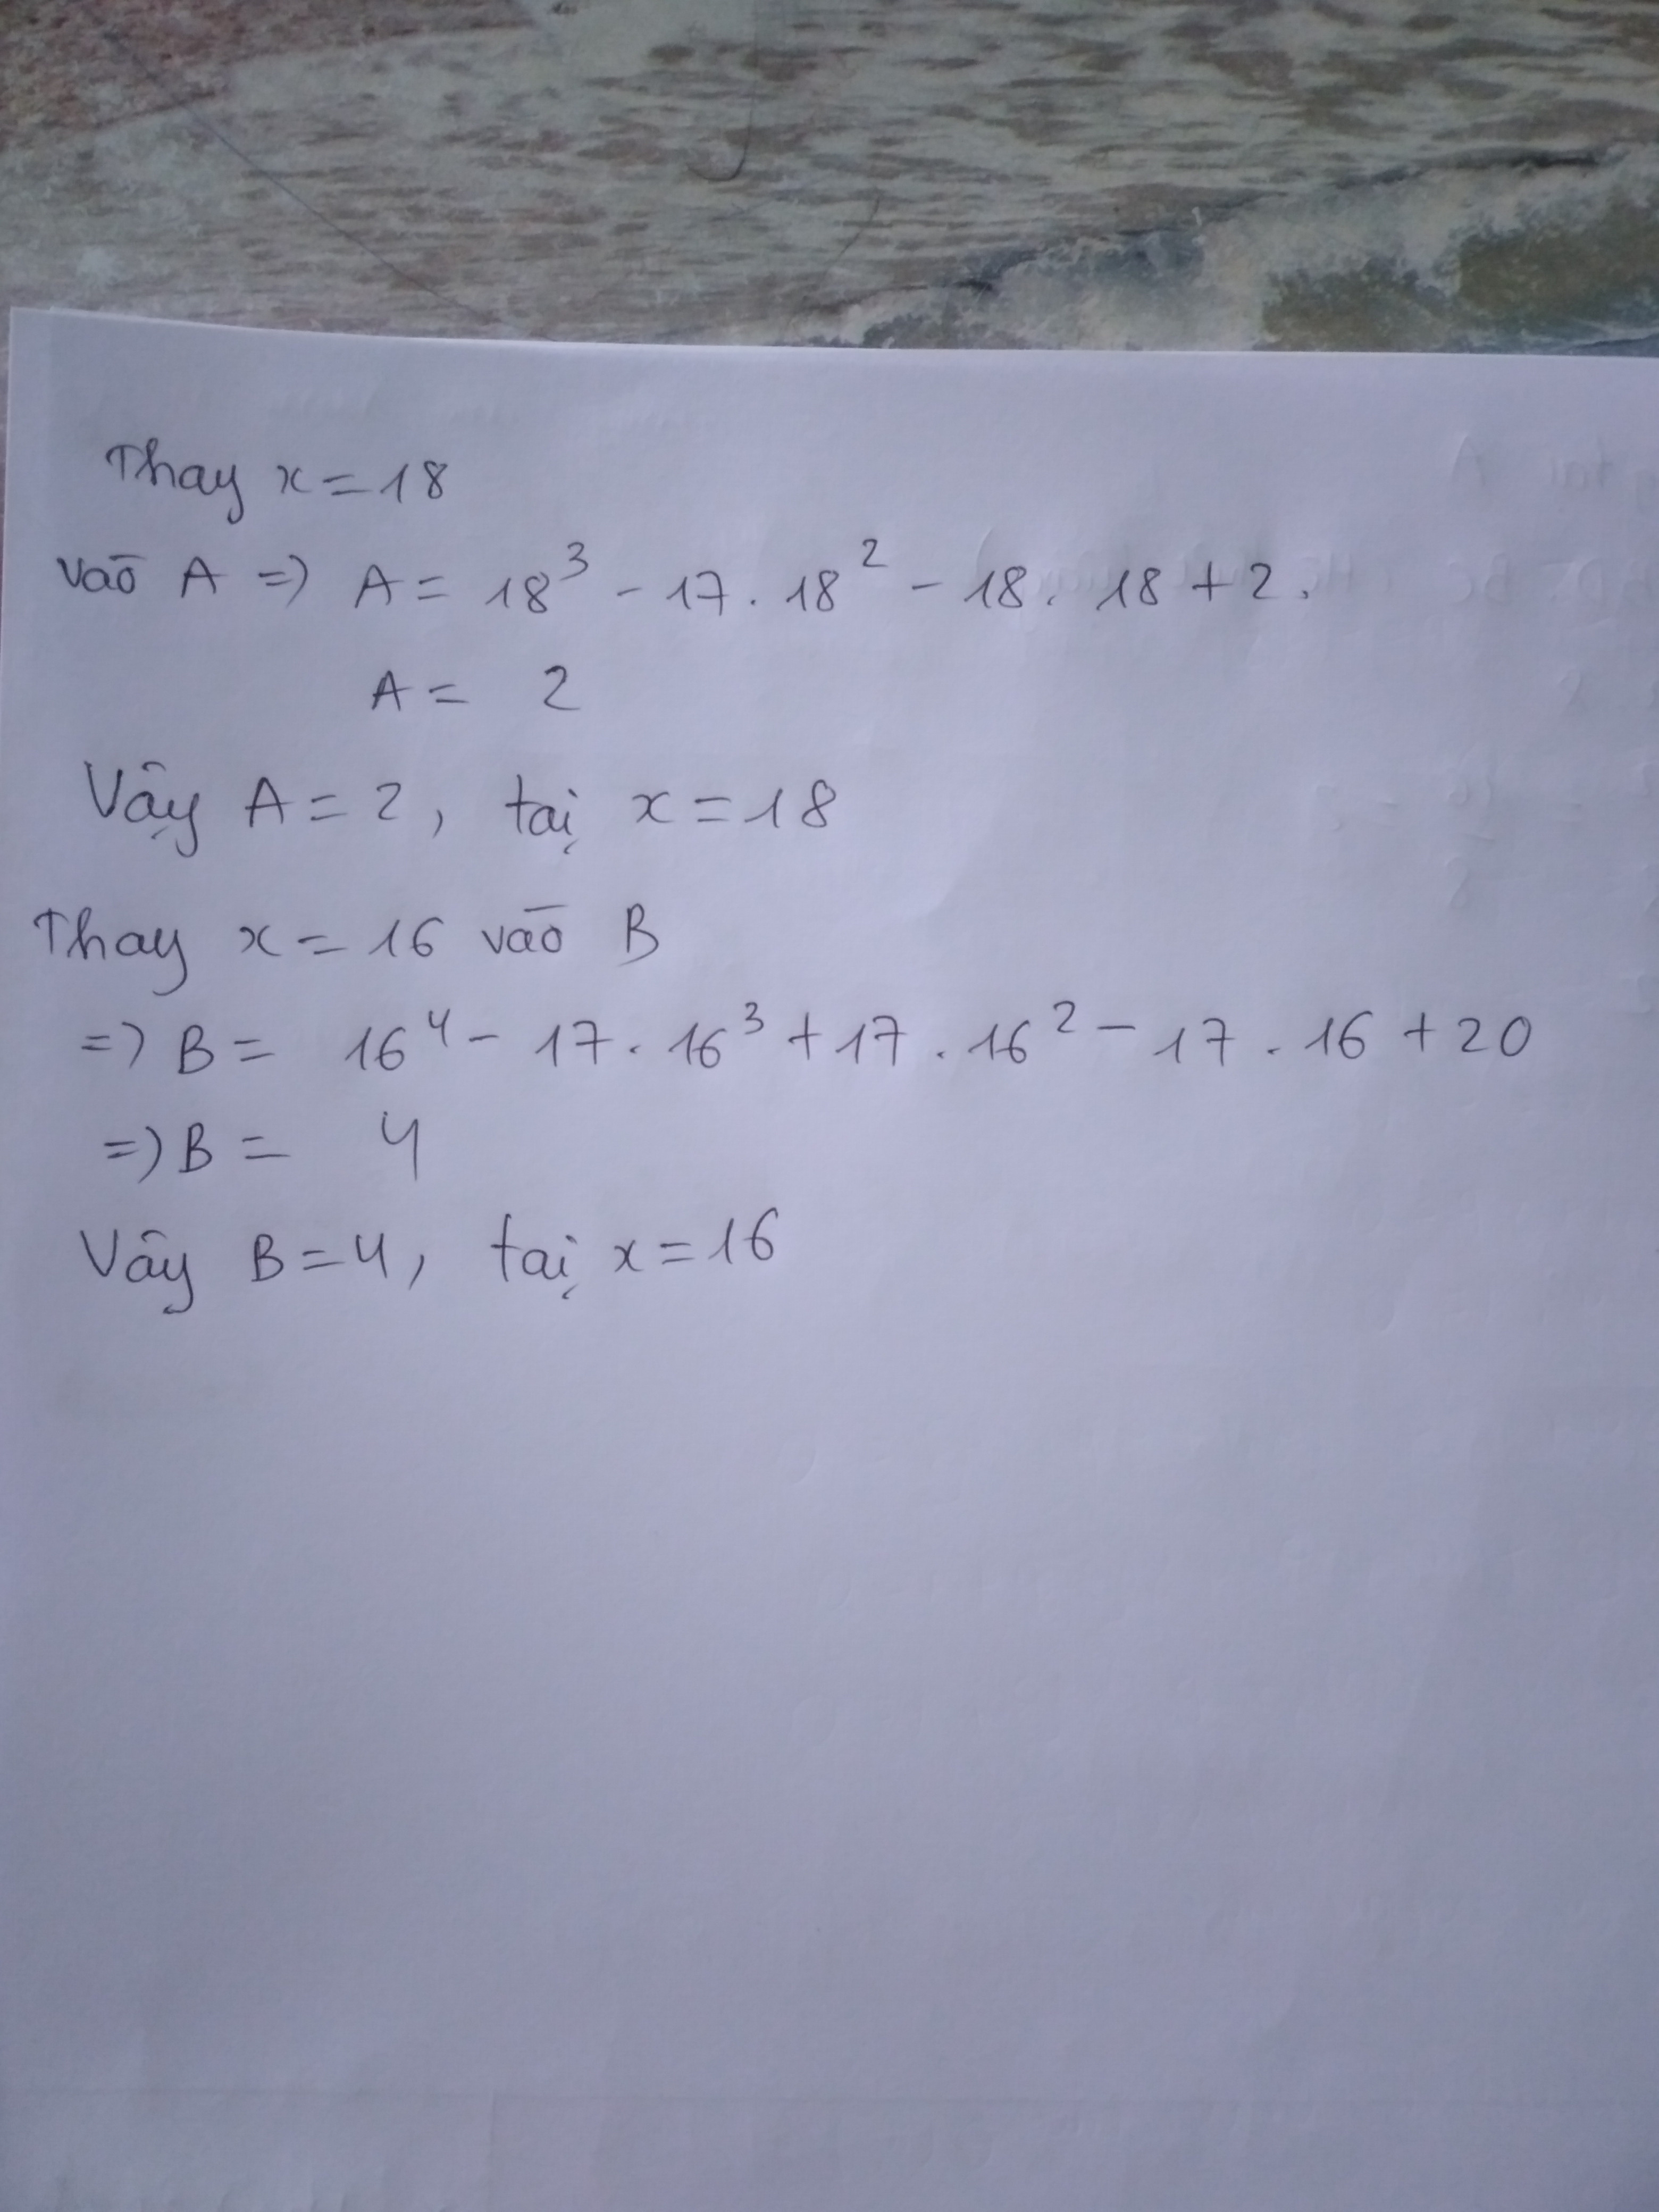 Thay x = 18
vào A => A = 18³ - 17 . 18² - 18 . 18 + 2 .
A = 2
Vậy A = 2, tại x = 18
Thay x = 16 vào B
=> B = 16⁴ - 17 . 16³ + 17 . 16² - 17 . 16 + 20
=> B = 4
Vậy B = 4, tại x = 16